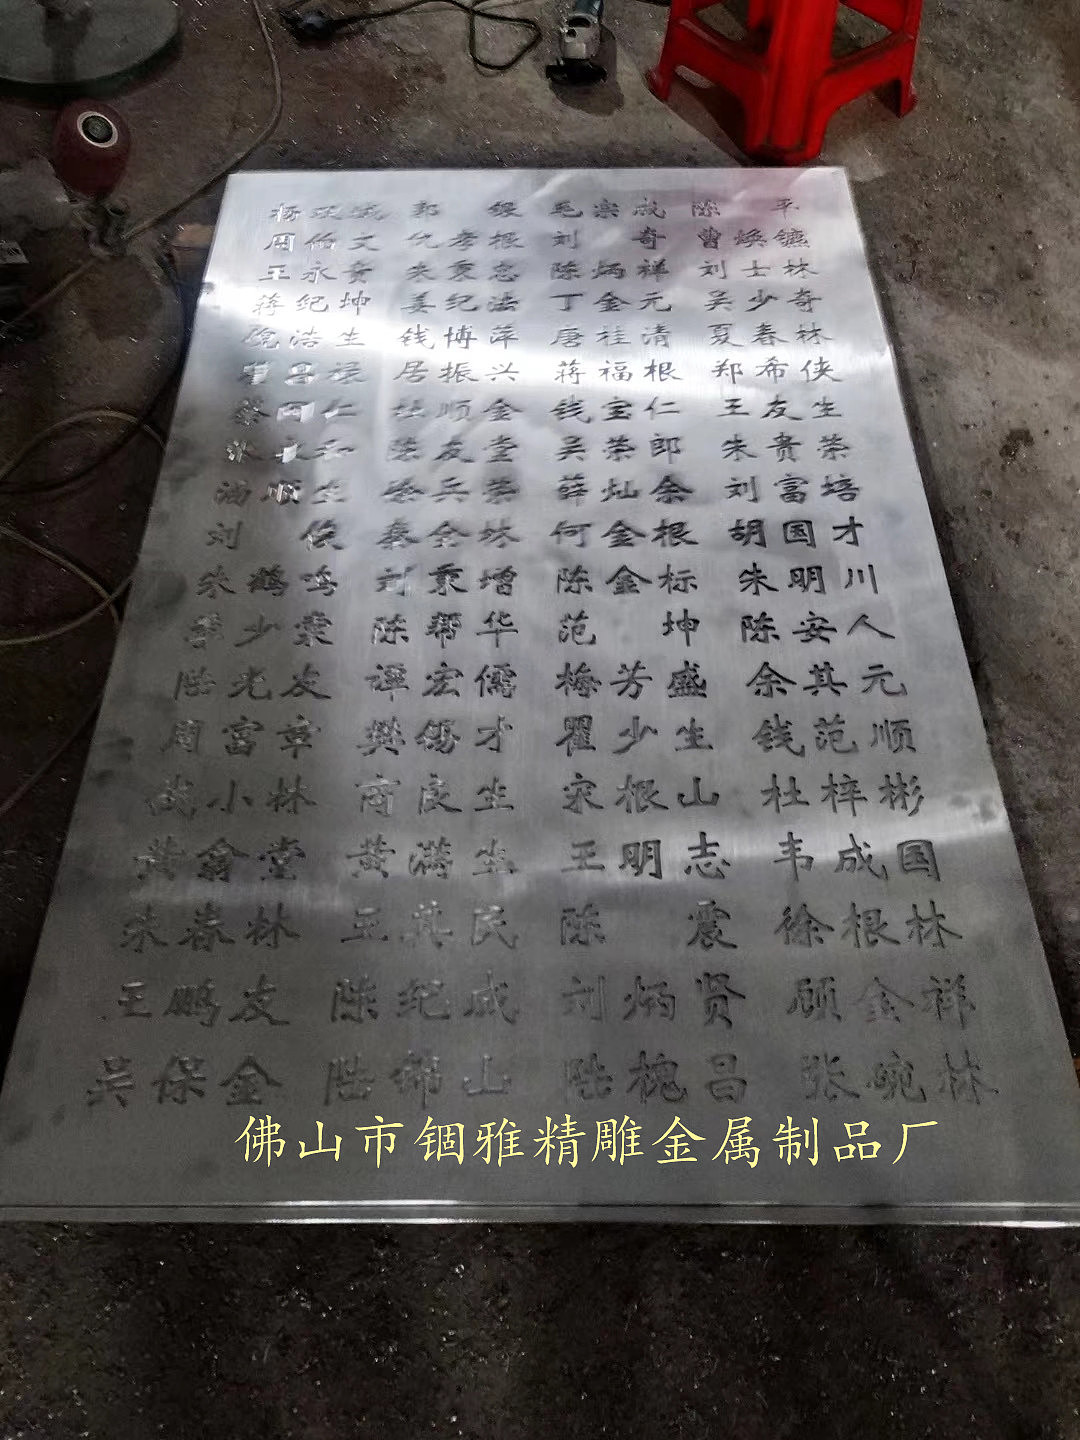 郭 银 毛宗成 陈 平
周伯文 仇孝根 刘 奇 曹焕镳
王永贵 朱秉忠 陈炳祥 刘士林
蒋纪坤 姜纪法 丁金元 吴少奇
倪浩生 钱博萍 唐桂清 夏春林
居振兴 蒋福根 郑希侠
蔡阿仁 杜顺金 钱宝仁 王友生
陈友堂 吴荣郎 朱贵荣
顺生 徐兵荣 薛灿余 刘富培
刘 俊 秦金林 何金根 胡国才
朱鹤鸣 刘秉增 陈金标 朱明川
少棠 陈帮华 范 坤 陈安人
陆光友 谭宏儒 梅芳盛 余其元
周富章 樊锡才 瞿少生 钱范顺
战小林 商良生 宋根山 杜梓彬
黄翕堂 黄满生 王明志 韦成国
朱春林 王其民 陈 震 徐根林
王鹏友 陈纪成 刘炳贤 顾金祥
吴保金 陆锦山 陆槐昌 张畹林
佛山市锢雅精雕金属制品厂